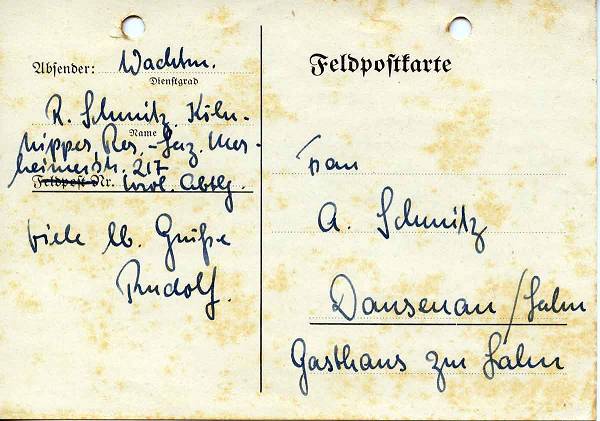 Absender: Wachtm.
Dienstgrad
R. Schmitz, Köln-
Name
Nippes, Res.-Laz. Mer-
heimerstr. 217
Feldpost-Nr. urol. Abtlg.
viele lb. Grüße
Rudolf.
Feldpostkarte
Frau
A. Schmitz
Dausenau/Lahn
Gasthaus zur Lahn